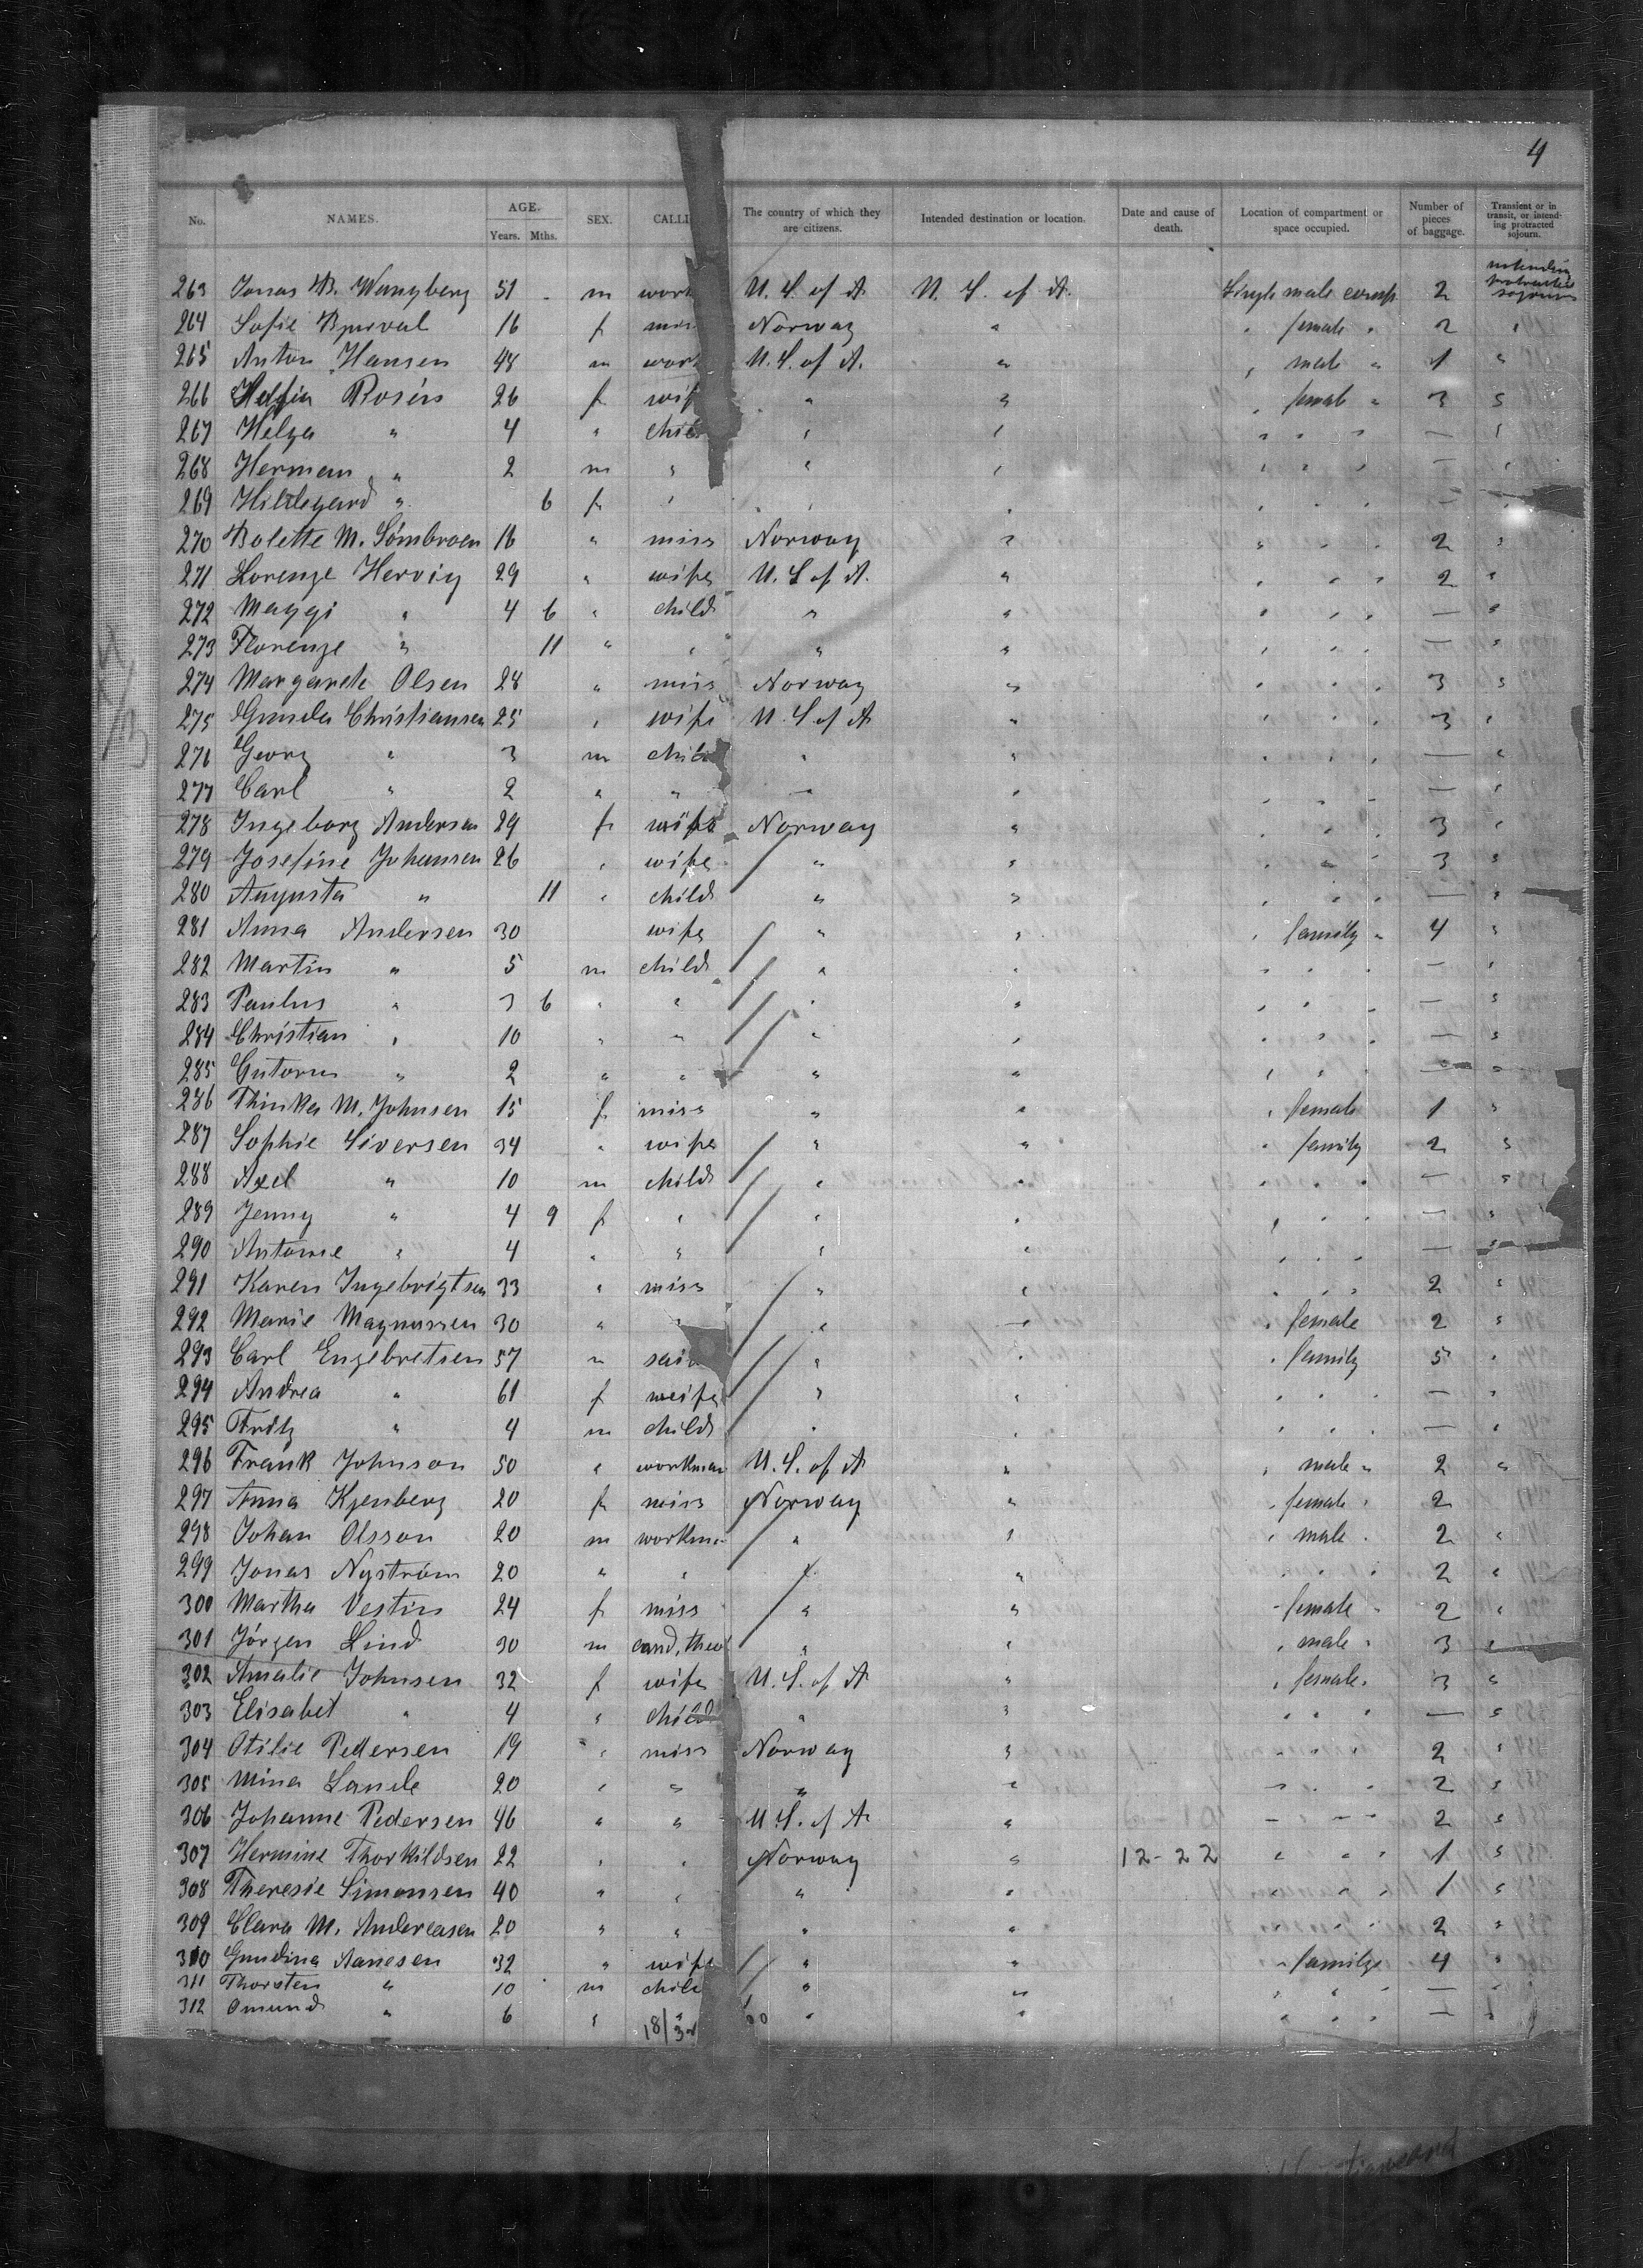 4
No. NAMES. AGE. Years. Mths. SEX. CALLI The country of which they are citizens. Intended destination or location. Date and cause of death. Location of compartment or space occupied. Number of pieces of baggage. Transient or in transit, or intending protracted sojourn.
263 Jonas B. Wangberg 51 - m work U. S. of A. U. S. of A. Single male comp. 2 intending protracted sojourn
264 Sofie 16 f miss Norway " " female " 2 "
265 Anton Hansen 48 m work U. S. of A. " " male " 1 "
266 Rosén 26 f wif " " " female " 3 "
267 Helga " 4 " child " " " " " — "
268 Herman " 2 m " " " " " " — "
269 Hildegard " 6 f " " " " " " — "
270 Bolette M. 16 " miss Norway " " " " 2 "
271 Lorenze Hervig 29 " wife U. S. of A. " " " " 2 "
272 Maggi " 4 6 " child " " " " " — "
273 Florenze " 11 " " " " " " " — "
274 Margarete Olsen 28 " miss Norway " " " " 3 "
275 Gunda Christiansen 25 " wife U. S. of A " " " " 3 "
276 Georg " 3 m child " " " " " — "
277 Carl " 2 " " " " " " " — "
278 Ingeborg Andersen 29 f wife Norway " " " " 3 "
279 Josefine Johansen 26 " wife " " " " " 3 "
280 Augusta " 11 " child " " " " " — "
281 Anna Andersen 30 wife " " " family " 4 "
282 Martin " 5 m child " " " " " — "
283 Paulus " 3 6 " " " " " " " — "
284 Christian " 10 " " " " " " " — "
285 Gutorm " 2 " " " " " " " — "
286 Thinka M. Johnsen 15 f miss " " " female 1 "
287 Sophie Siversen 34 " wife " " " family 2 "
288 Axel " 10 m child " " " " " — "
289 Jenny " 4 9 f " " " " " " — "
290 Antonie " 4 " " " " " " " — "
291 Karen Ingebrigtsen 33 " miss " " " " " 2 "
292 Marie Magnussen 30 " " " " " female 2 "
293 Carl Engebretsen 57 m sai " " " family 5 "
294 Andrea " 61 f weife " " " " " — "
295 Fritz " 4 m child " " " " " — "
296 Frank Johnson 50 " workman U. S. of A " " male " 2 "
297 Anna Kjenberg 20 f miss Norway " " female " 2 "
298 Johan Olsson 20 m workman " " " male " 2 "
299 Jonas Nyström 20 " " " " " " " 2 "
300 Martha Vestin 24 f miss " " " female " 2 "
301 Jörgen Lind 30 m cand. theol " " " male " 3 "
302 Amalie Johnsen 32 f wife U. S. of A " " female " 3 "
303 Elisabet " 4 " child " " " " " — "
304 Otilie Pedersen 19 " miss Norway " " " " 2 "
305 Mina Lande 20 " " " " " " " 2 "
306 Johanne Pedersen 46 " " U. S. of A " " " " 2 "
307 Hermine Thorkildsen 22 " " Norway " 12-22 " " " 1 "
308 Theresie Simonsen 40 " " " " " " " 1 "
309 Clara M. Andereasen 20 " " " " " " " 2 "
310 Gundina Aanesen 32 " wife " " " family 4 "
311 Thorsten " 10 m child " " " " " — "
312 Omund " 6 " " " " " " " — "
18/3